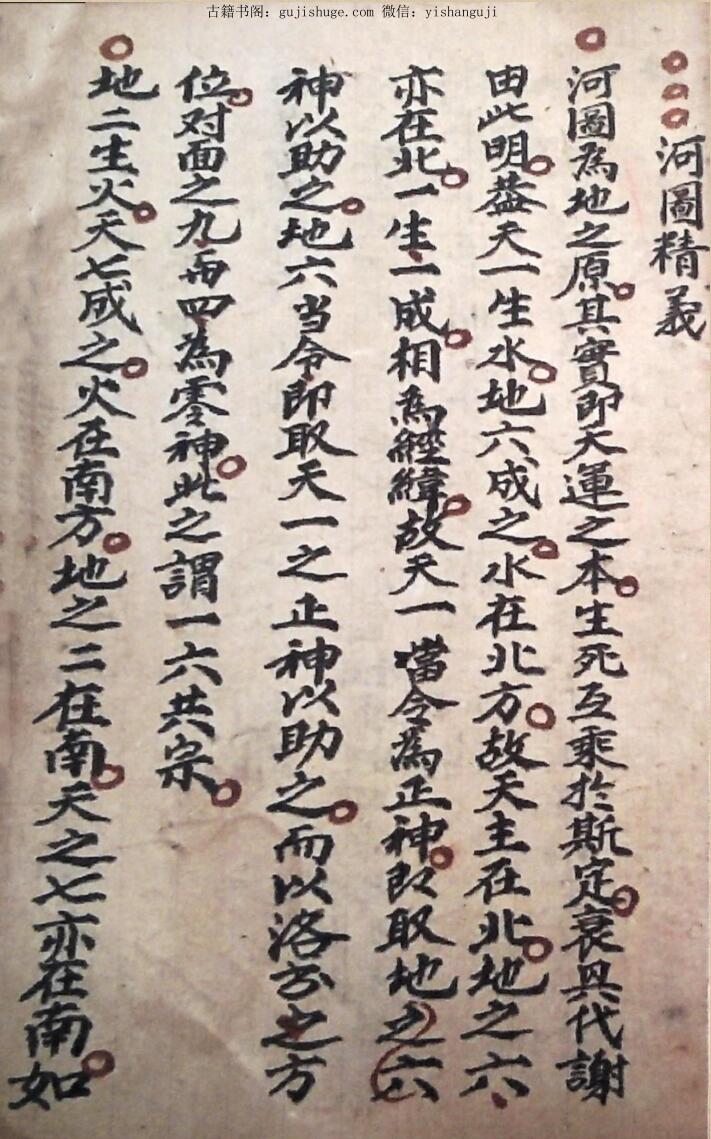 古籍书阁：gujishuge.com 微信：yishanguji
河圖精義
河圖為地之原其實即天運之本生死互乘於斯定衰具代謝
由此明葢天一生水地六成之水在北方故天主在北地之六
亦在北一生一成相為經緯故天一當令為正神即取地之六
神以助之地六当令即取天一之正神以助之而以洛书之方
位对面之九而四為零神此之謂一六共宗
地二生火天七成之火在南方地之二在南天之七亦在南如